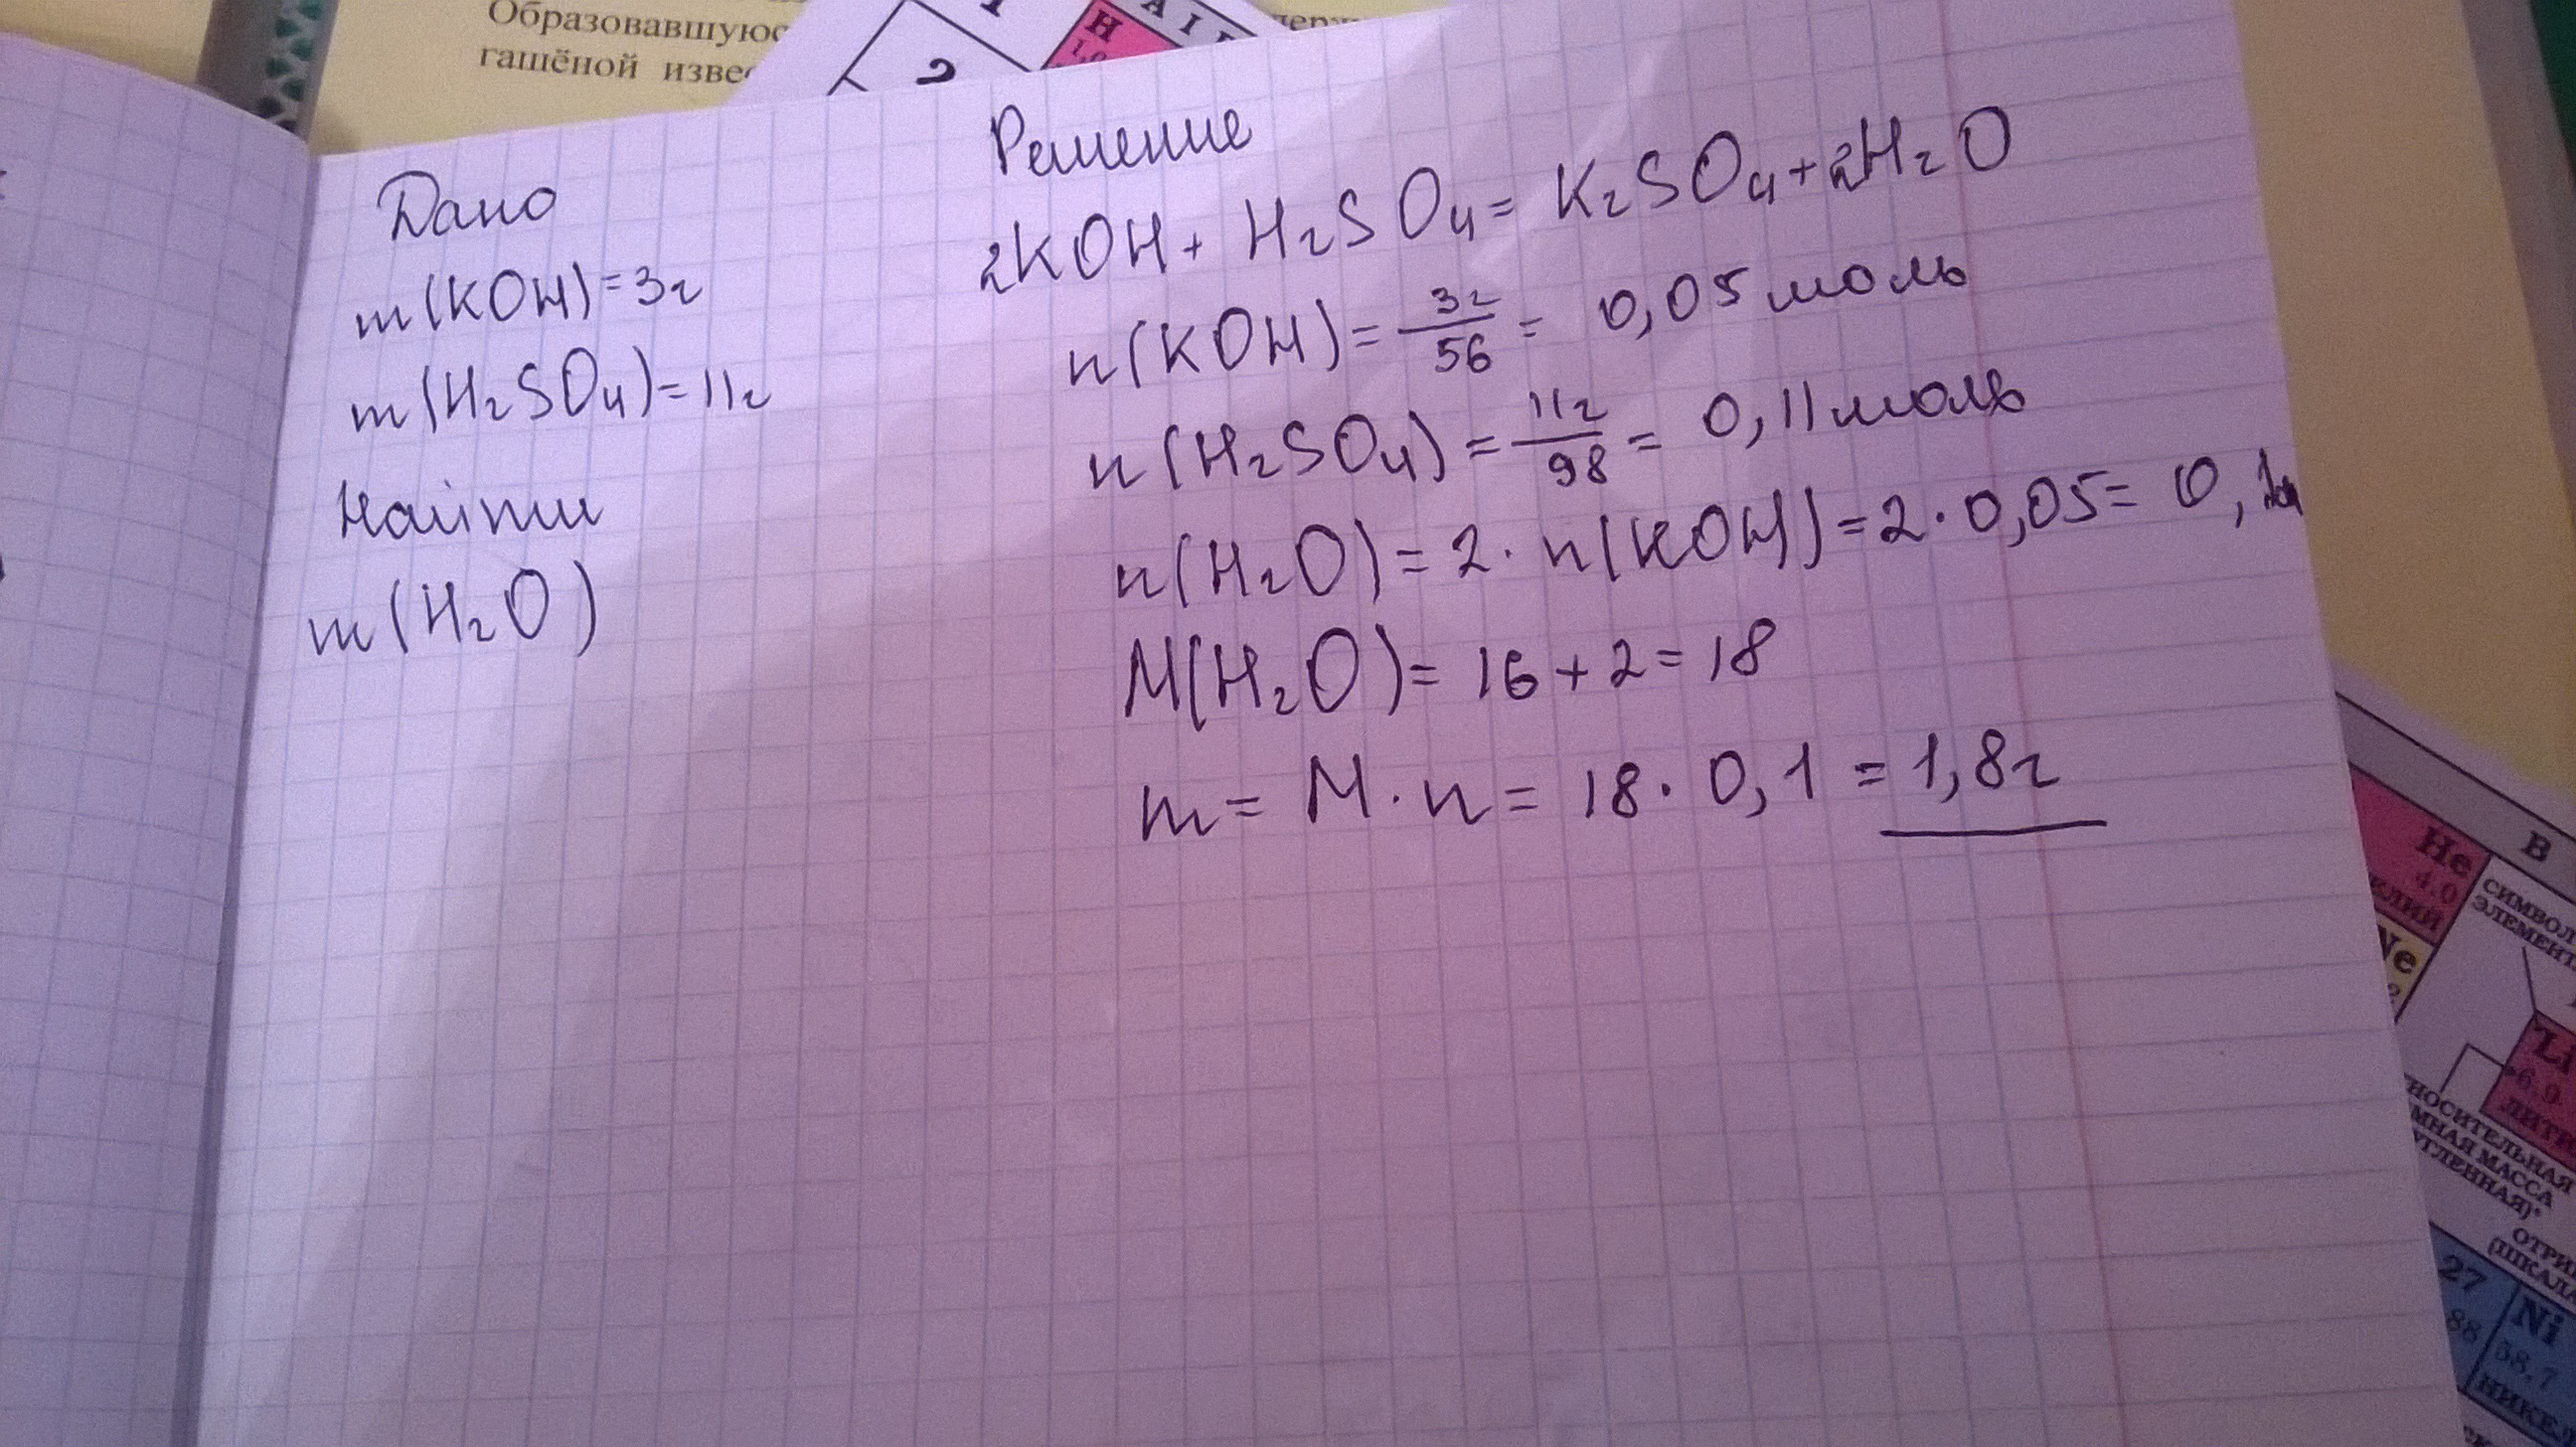 Образовавшуюс
гашёной изве
H
A I
Дано
m(KOH)=3г
m(H₂SO₄)=11г
Найти
m(H₂O)
Решение
2KOH+ H₂SO₄= K₂SO₄+2H₂O
n(KOH)= 3г/56 = 0,05 моль
n(H₂SO₄)= 11г/98 = 0,11 моль
n(H₂O)= 2·n(KOH)=2·0,05= 0,1
M(H₂O)= 16+2=18
m= M·n= 18·0,1 = 1,8г
He
4.0
B
СИМВОЛ
ЭЛЕМЕНТ
Ne
Li
6.9
ЛИТИ
НОСИТЕЛЬНАЯ
МНАЯ МАССА
УГЛЕННАЯ)*
ОТРИ
(ШКАЛА
27
88
Ni
58,7
НИКЕ